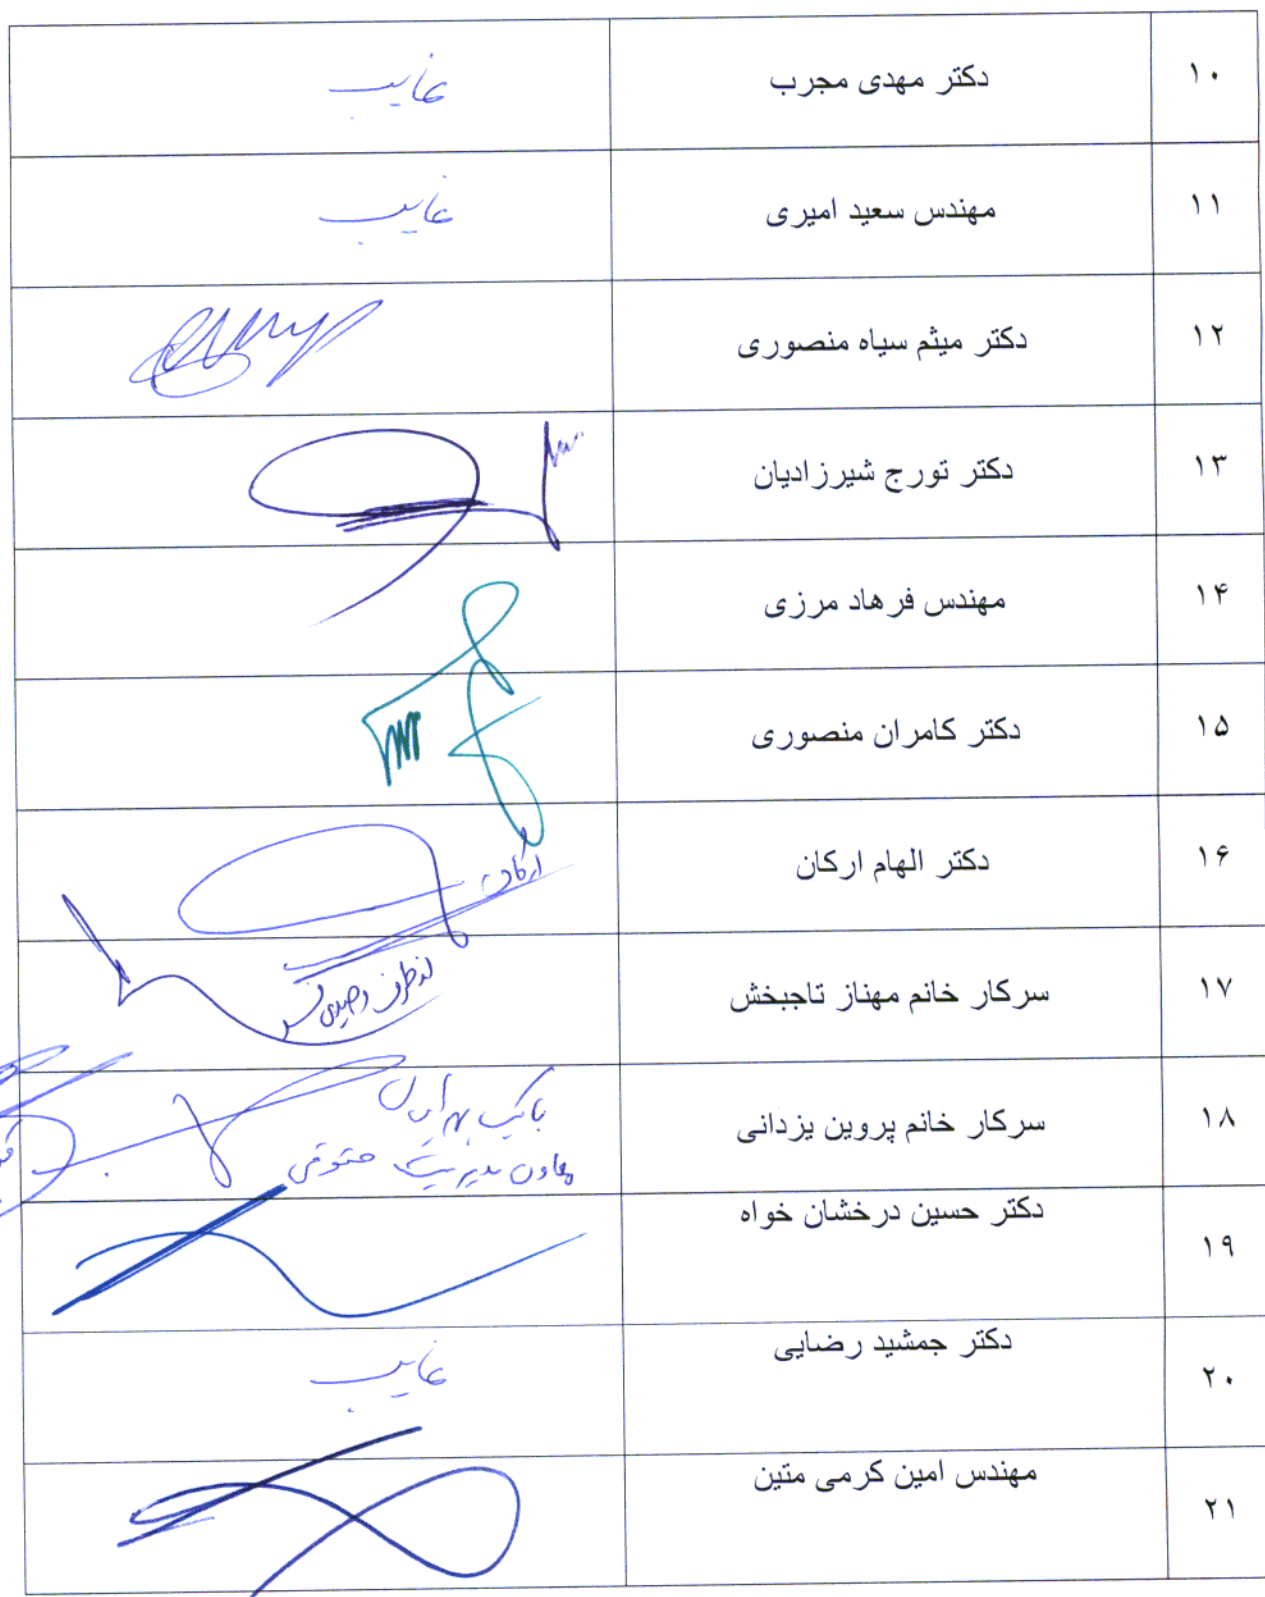 ۱۰ دکتر مهدی مجرب غایب
۱۱ مهندس سعید امیری غایب
۱۲ دکتر میثم سیاه منصوری
۱۳ دکتر تورج شیرزادیان
۱۴ مهندس فرهاد مرزی
۱۵ دکتر کامران منصوری
۱۶ دکتر الهام ارکان ارکان
۱۷ سرکار خانم مهناز تاجبخش از طرف
۱۸ سرکار خانم پروین یزدانی
معاون مدیریت حقوقی
۱۹ دکتر حسین درخشان خواه
۲۰ دکتر جمشید رضایی غایب
۲۱ مهندس امین کرمی متین